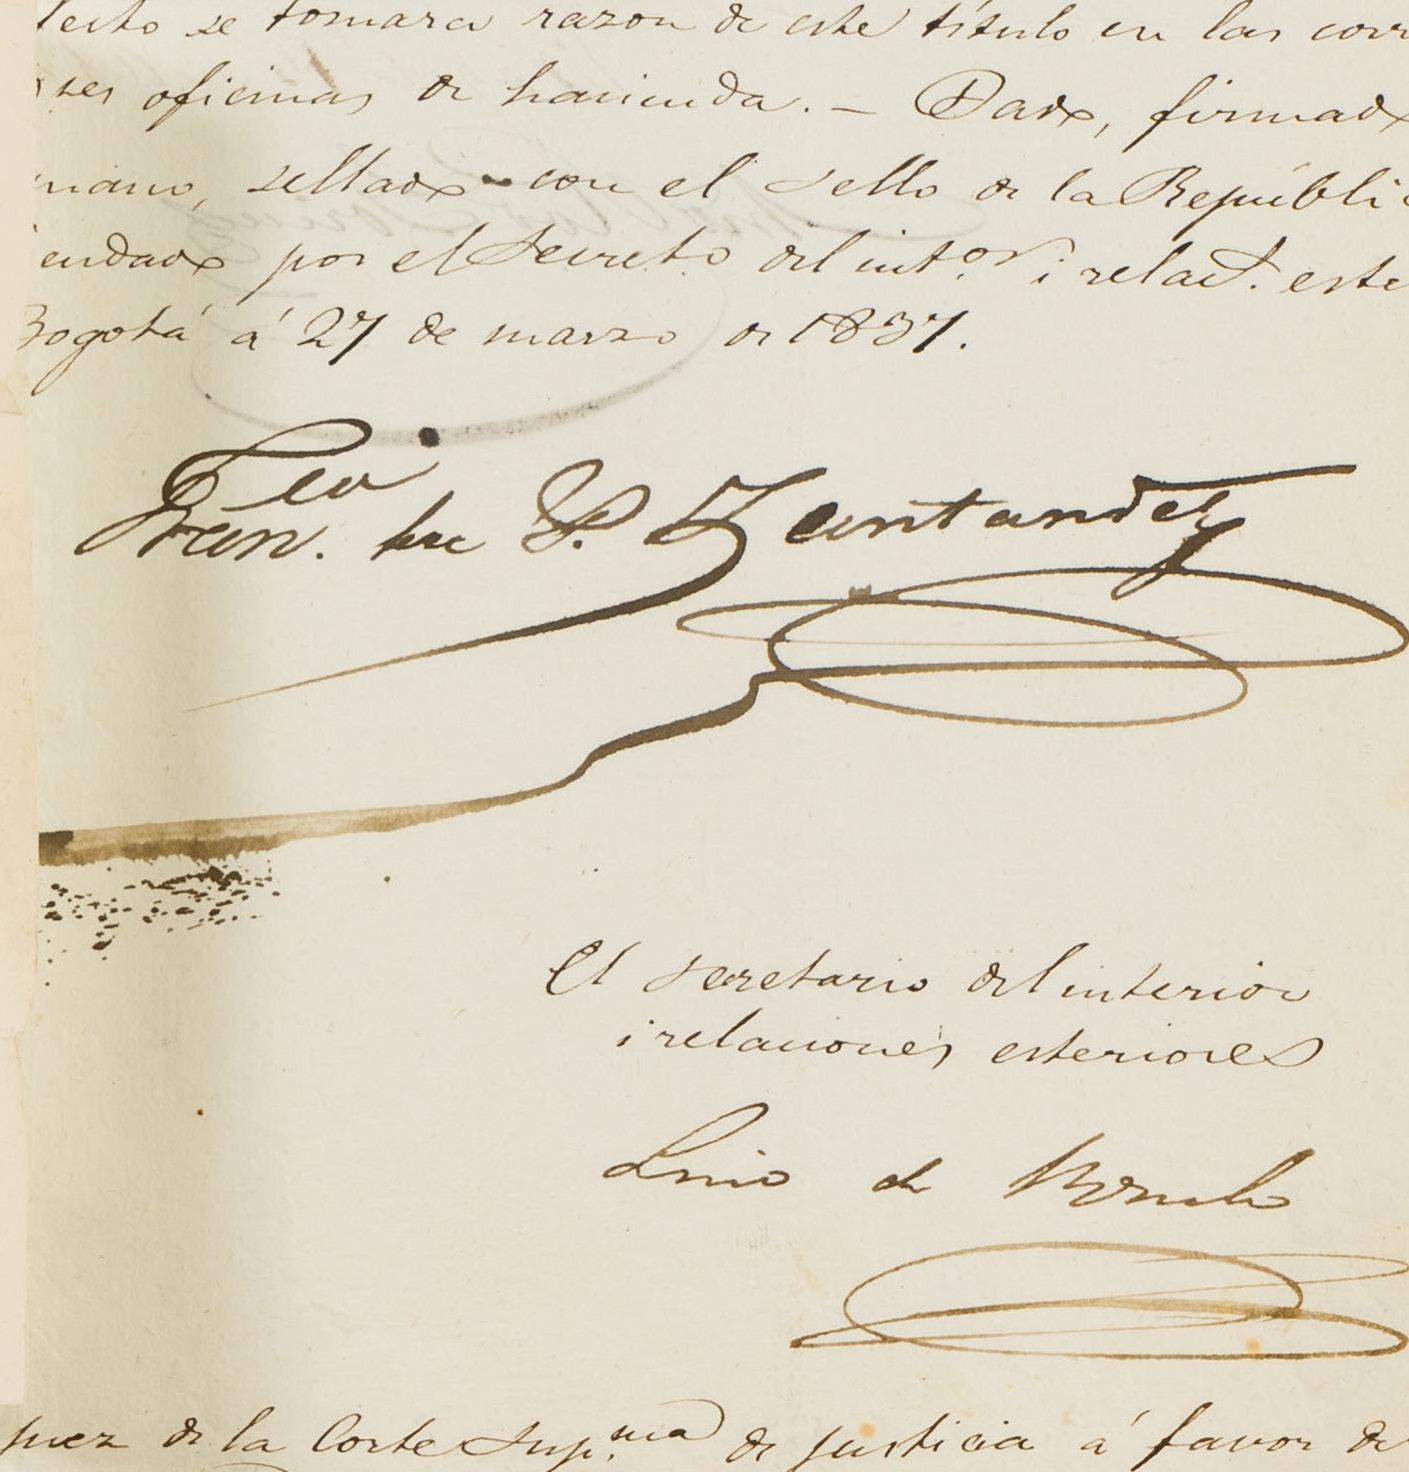 se tomara razon de este título en las corr
ses oficinas de hacienda. — Dado, firmado
mano, sellado con el sello de la Repúbli
endado por el Secreto del int.or i relac.s este
Bogotá á 27 de marzo de 1837.
Fran.co de P. Santander
El secretario del interior
i relaciones esteriores
Lino de Pombo
juez de la Corte Sup.ma de justicia á favor de